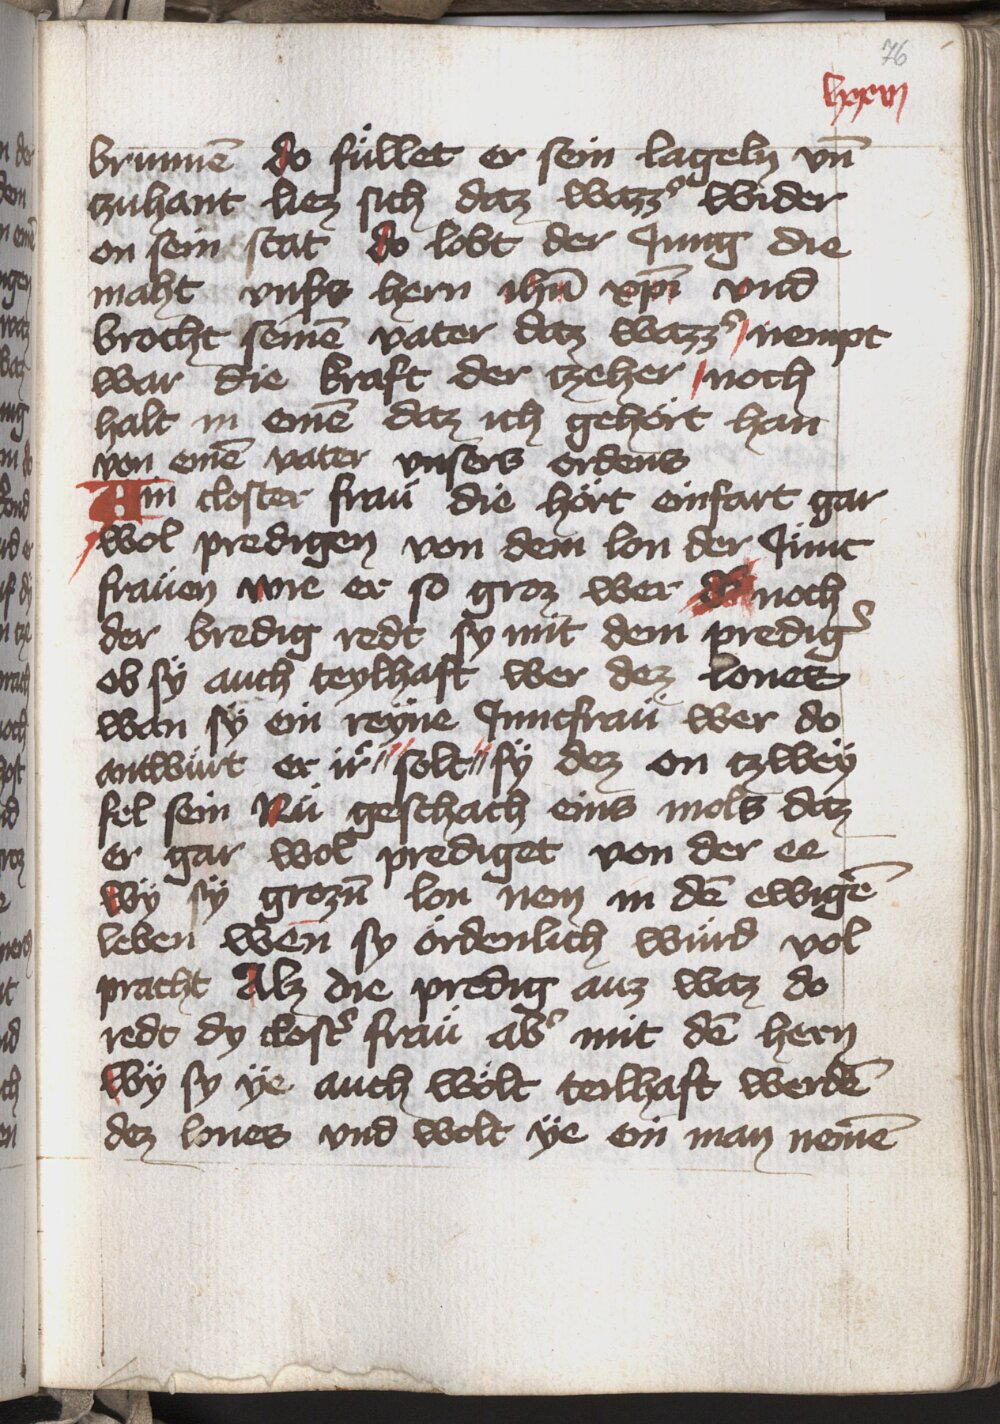 76
lxxvi
brunnē do füllet er sein lageln vn̄
tzuhant liez sich daz wazz᷑ wider
on sein stat do lobt der Jung die
maht vnsers hern ihū xp̄i vnd
brocht seinē vater daz wazz᷑ nempt
war die kraft der tzeher noch
halt in einē daz ich gehört han
von einē vater vnsers ordens
Ain closter fraü die hört einfart gar
wol predigen von dem lon der Junc
fraüen wie er so groz wer do noch
der bredig redt sy mit dem predig᷑
ob sÿ auch teylhaft wer dez lones
wan sÿ ein reÿne Juncfraü wer do
antwürt er ir solt sÿ dez on tzweÿ
fel sein Nü geschach eins mols daz
er gar wol prediget von der ee
wÿ sÿ grozn̄ lon nem in dē ewigē
leben wen̄ sy ördenlich würd vol
pracht Alz die predig auz waz do
redt dy clost᷑ fraü ab᷑ mit dē hern
wÿ sy ÿe auch wölt teilhaft werdē
dez lones vnd wolt ÿe ein man nemē